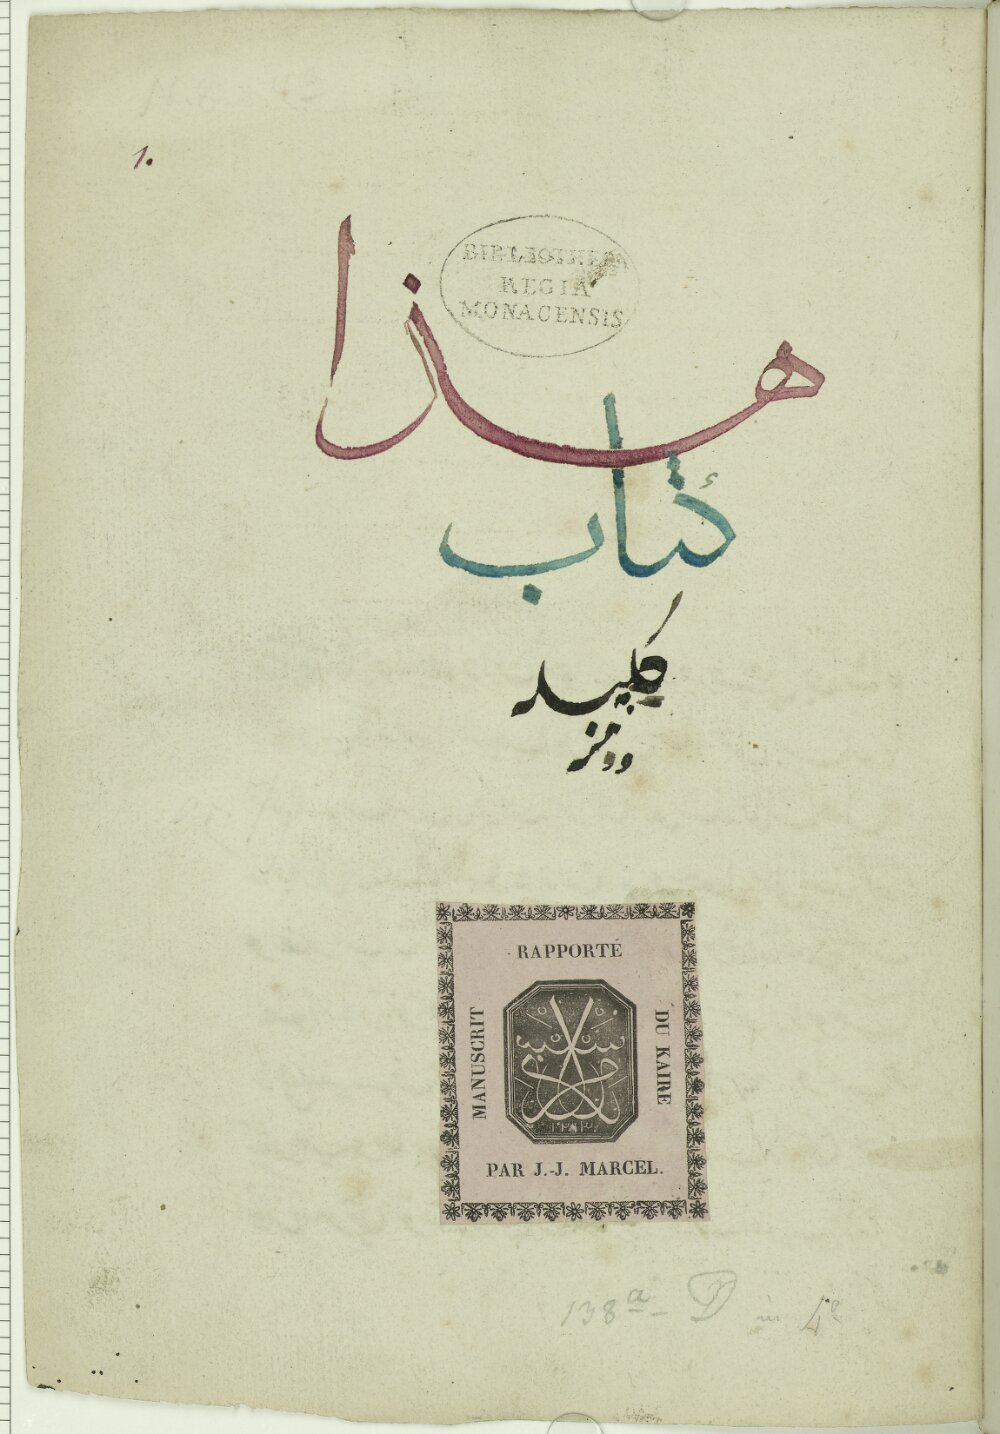 1.
BIBLIOTHECA
REGIA
MONACENSIS
هذا
كتاب
كليله
ودمنه
RAPPORTÉ
MANUSCRIT
DU KAIRE
PAR J.-J. MARCEL.
138 a
in 4º